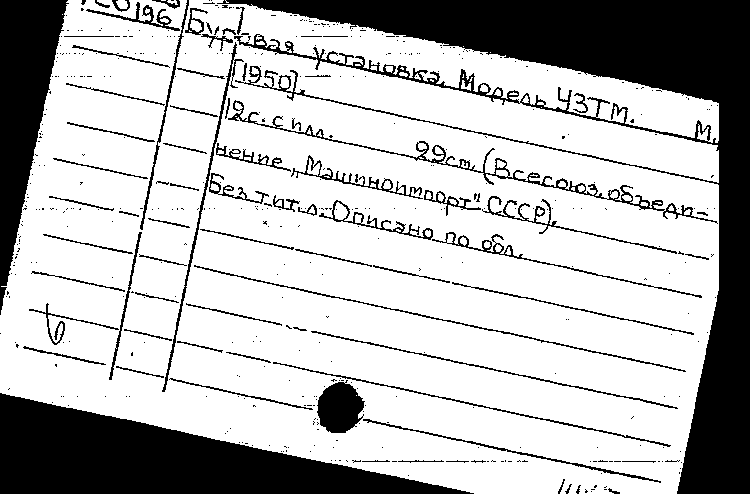 196 Буровая установка. Модель УЗТМ. М.,
[1950].
12с. с илл. 29см. (Всесоюз. объеди-
нение „Машиноимпорт" СССР).
Без тит. л. Описано по обл.